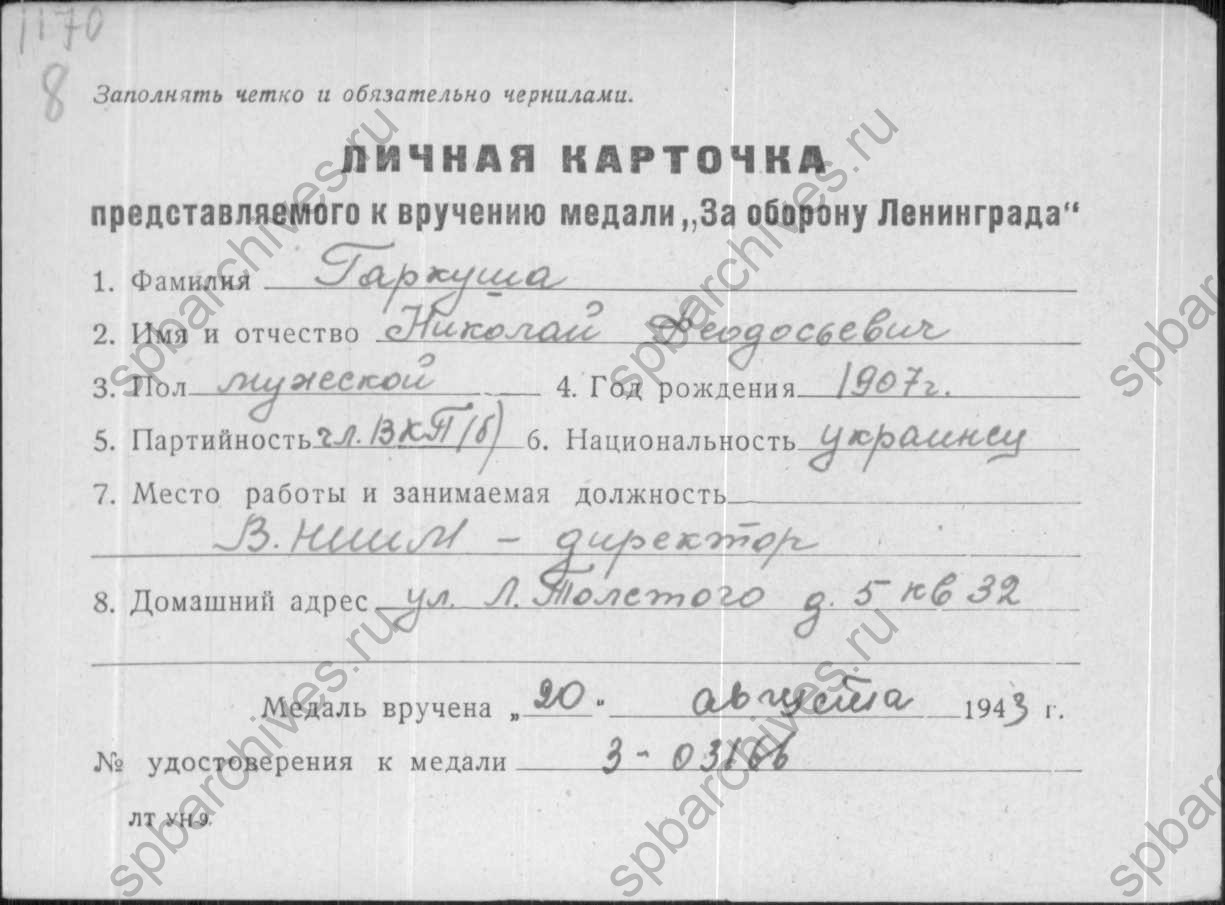 1170
8
Заполнять четко и обязательно чернилами.
ЛИЧНАЯ КАРТОЧКА
представляемого к вручению медали „За оборону Ленинграда"
1. Фамилия Гаркуша
2. Имя и отчество Николай Феодосьевич
3. Пол мужеской 4. Год рождения 1907 г.
5. Партийность чл. ВКП(б) 6. Национальность украинец
7. Место работы и занимаемая должность
В.НИИМ – директор
8. Домашний адрес ул. Л. Толстого д. 5 кв 32
Медаль вручена „20" августа 1943 г.
№ удостоверения к медали З - 03166
ЛТ УН 9.
spbarchives.ru
spbarchives.ru
spbarchives.ru
spbarchives.ru
spbar
spbar